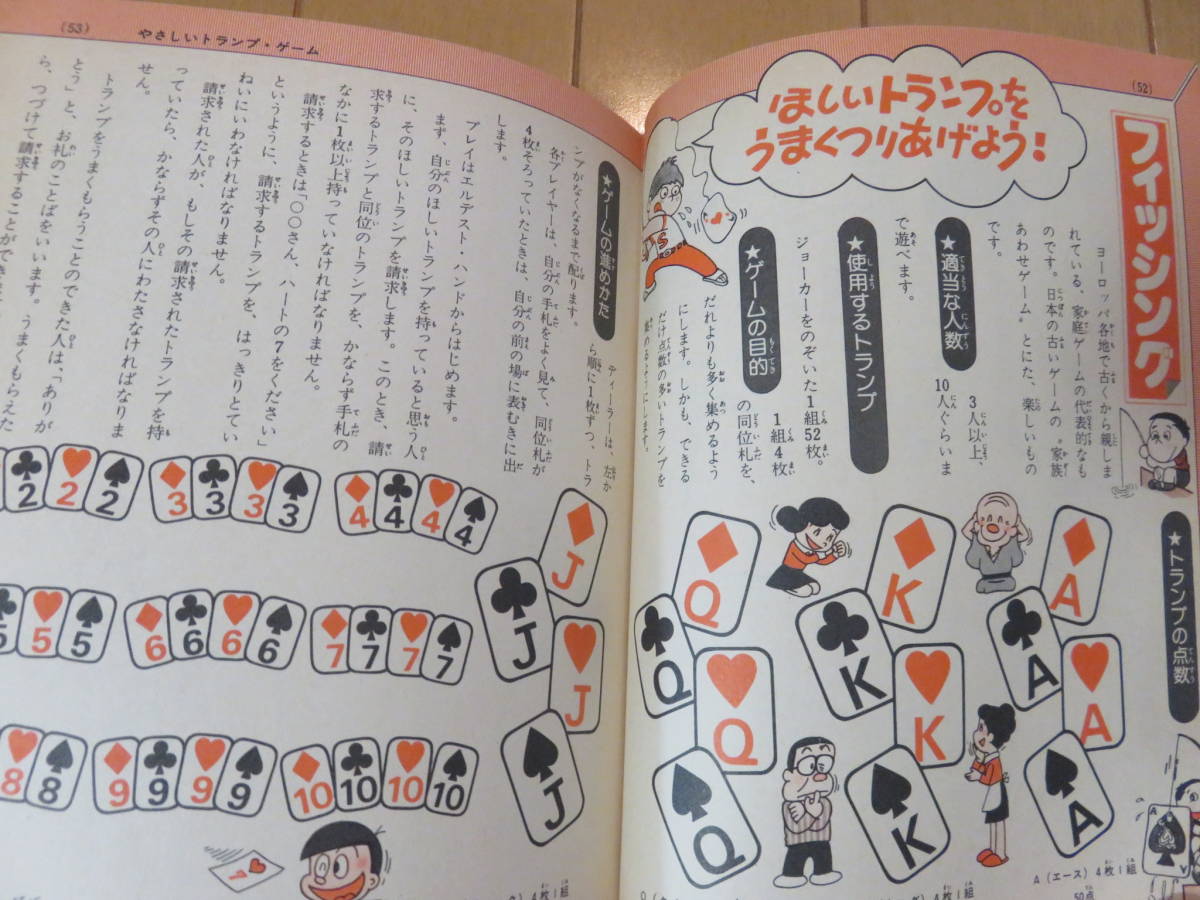 (52)
フィッシング
ほしいトランプを
うまくつりあげよう!
ヨーロッパ各地で古くから親しま
れている、家庭ゲームの代表的なも
のです。日本の古いゲームの〝家族
あわせゲーム〟とにた、楽しいもの
です。
★適当な人数
3人以上、
10人ぐらいま
で遊べます。
★使用するトランプ
ジョーカーをのぞいた1
組52枚。
★ゲームの目的
1組4枚
の同位札を、
だれよりも多く集めるよう
にします。しかも、できる
だけ点数の多いトランプを
集めるようにします。
★トランプの点数
A
A
A
A
K
K
K
K
Q
Q
Q
Q
A(エース)4枚1組
50点
4枚1組
(53)
やさしいトランプ・ゲーム
ディーラーは、左か
ら順に1枚ずつ、トラ
ンプがなくなるまで配ります。
★ゲームの進めかた
各プレイヤーは、自分の手札をよく見て、同位札が
4枚そろっていたときは、自分の前の場に表むきに出
します。
プレイはエルデスト・ハンドからはじめます。
まず、自分のほしいトランプを持っていると思う人
に、そのほしいトランプを請求します。このとき、請
求するトランプと同位のトランプを、かならず手札の
なかに1枚以上持っていなければなりません。
請求するときは「○○さん、ハートの7をください」
というように、請求するトランプを、はっきりとてい
ねいにいわなければなりません。
請求された人が、もしその請求されたトランプを持
っていたら、かならずその人にわたさなければなりま
せん。
トランプをうまくもらうことのできた人は、「ありが
とう」と、お礼のことばをいいます。うまくもらえた
ら、つづけて請求することができます
J
J
J
J
2
2
2
3
3
3
3
4
4
4
4
5
5
5
6
6
6
6
7
7
7
7
8
8
9
9
9
9
10
10
10
10
7
4枚1組